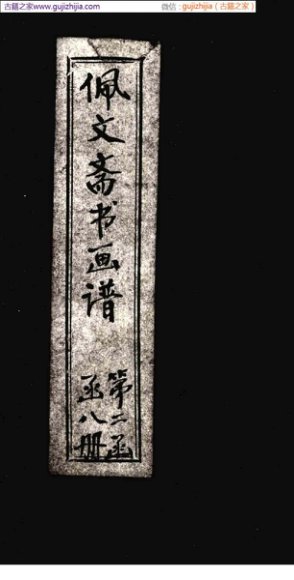 古籍之家www.gujizhijia.com
微信：gujizhijia（古籍之家）
佩文斋书画谱
第二函
函八册